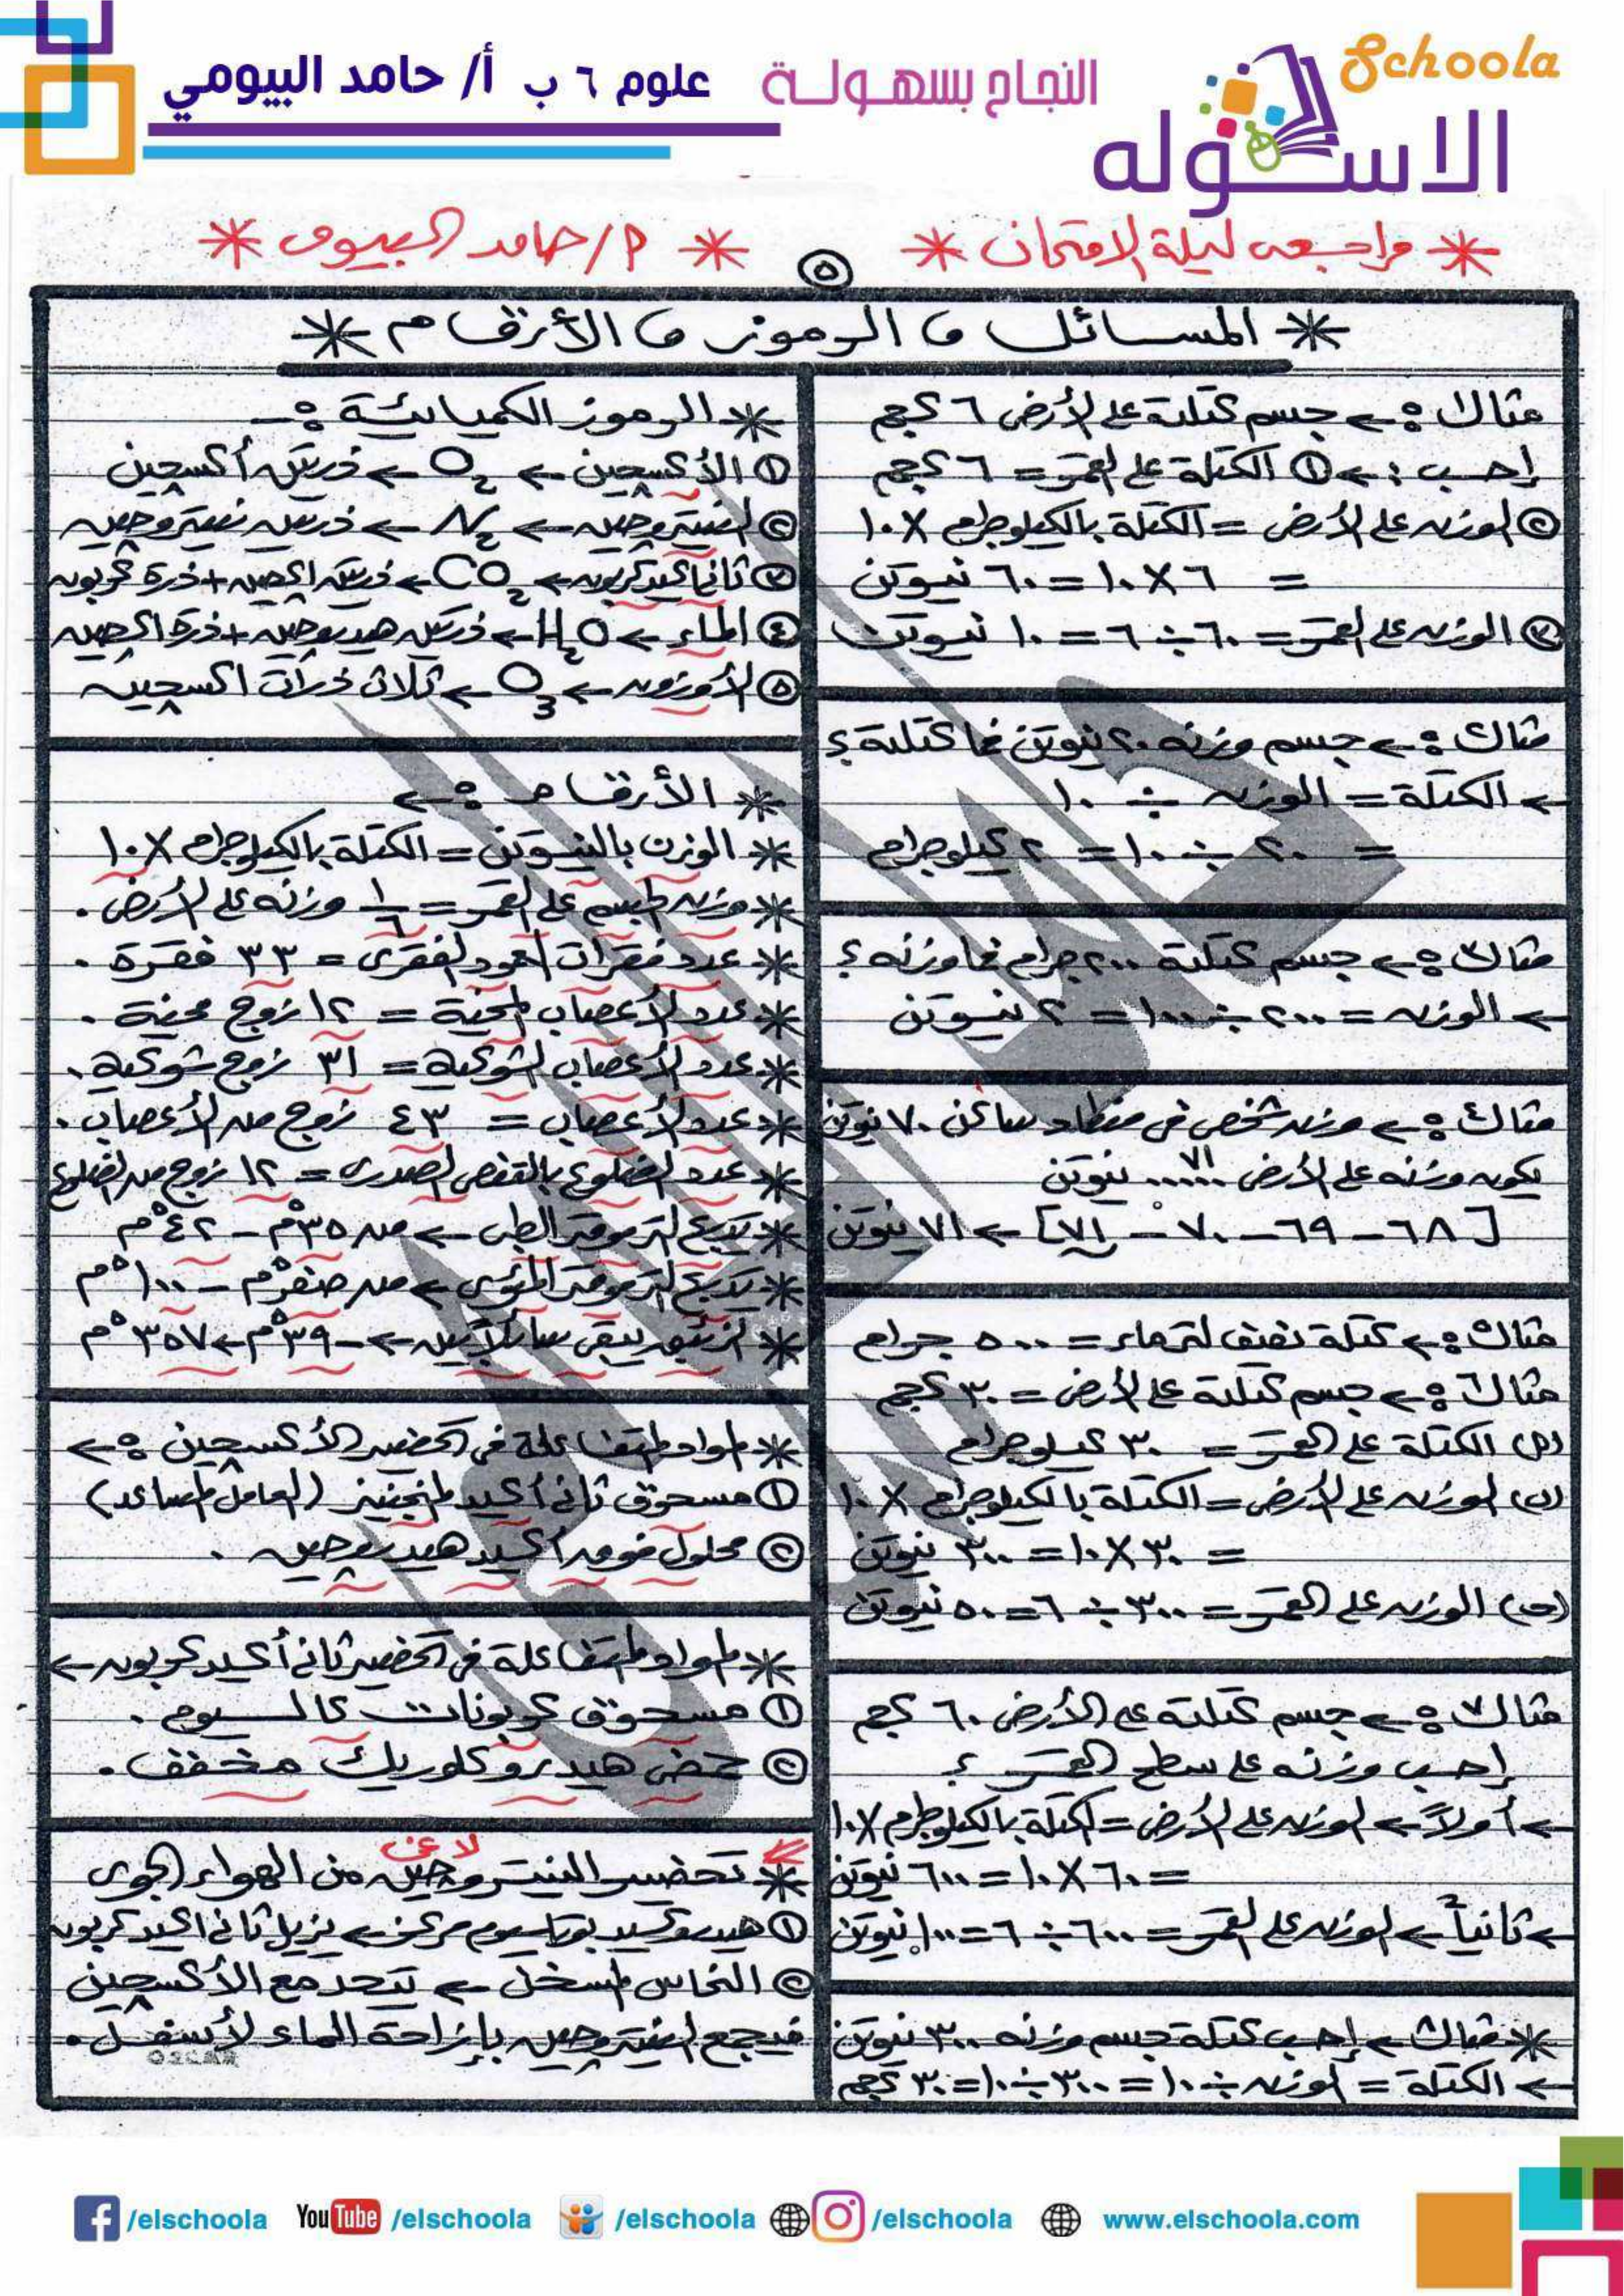 Schoola
الاسكوله
النجاح بسهولة
علوم ٦ ب أ/ حامد البيومي
* مراجعه ليلة الامتحان *
* م/حامد البيومى *
٥
* المسائل و الرموز و الأرقام *
مثال١ : ← جسم كتلته على الأرض ٦ كجم
إحسب : ← ① الكتلة على القمر = ٦ كجم
② الوزن على الأرض = الكتلة بالكيلوجرام × ١٠
= ٦ × ١٠ = ٦٠ نيوتن
③ الوزن على القمر = ٦٠ ÷ ٦ = ١٠ نيوتن
مثال٢ : ← جسم وزنه ٢٠ نيوتن فما كتلته ؟
← الكتلة = الوزن ÷ ١٠
= ٢٠ ÷ ١٠ = ٢ كيلوجرام
مثال٣ : ← جسم كتلته ٢٠٠ جرام فما وزنه ؟
← الوزن = ٢٠٠ ÷ ١٠٠ = ٢ نيوتن
مثال٤ : ← وزن شخص فى منطاد ساكن ٧٠ نيوتن
يكون وزنه على الأرض ..٧١.. نيوتن
[٦٨ – ٦٩ – ٧٠ – ٧١] ← ٧١ نيوتن
مثال٥ : ← كتلة نصف لتر ماء = ٥٠٠ جرام
مثال٦ : ← جسم كتلته على الأرض = ٣٠ كجم
(أ) الكتلة على القمر = ٣٠ كيلوجرام
(ب) الوزن على الأرض = الكتلة بالكيلوجرام × ١٠
= ٣٠ × ١٠ = ٣٠٠ نيوتن
(جـ) الوزن على القمر = ٣٠٠ ÷ ٦ = ٥٠ نيوتن
مثال٧ : ← جسم كتلته على الأرض ٦٠ كجم
إحسب وزنه على سطح القمر ؟
← أولاً ← الوزن على الأرض = الكتلة بالكيلوجرام × ١٠
= ٦٠ × ١٠ = ٦٠٠ نيوتن
← ثانياً ← الوزن على القمر = ٦٠٠ ÷ ٦ = ١٠٠ نيوتن
* مثال ← إحسب كتلة جسم وزنه ٣٠٠ نيوتن
← الكتلة = الوزن ÷ ١٠ = ٣٠٠ ÷ ١٠ = ٣٠ كجم
* الرموز الكميائية : –
① الأكسجين ← O₂ ← ذرتين أكسجين
② النيتروجين ← N₂ ← ذرتين نيتروجين
③ ثانى أكيد كربون ← CO₂ ← ذرتين اكجين + ذرة كربون
④ الماء ← H₂O ← ذرتين هيدروجين + ذرة اكجين
⑤ الأوزون ← O₃ ← ثلاث ذرات اكسجين
* الأرقام : ←
* الوزن بالنيوتن = الكتلة بالكيلوجرام × ١٠
* وزن الجسم على القمر = ١/٦ وزنه على الأرض .
* عدد فقرات العمود الفقرى = ٣٣ فقرة .
* عدد الأعصاب المخية = ١٢ زوج مخية .
* عدد الأعصاب الشوكية = ٣١ زوج شوكية .
* عدد الأعصاب = ٤٣ زوج من الأعصاب .
* عدد الضلوع بالقفص الصدرى = ١٢ زوج من الضلوع
* تدريج الترمومتر الطبى ← من ٣٥°م – ٤٢°م
* تدريج الترمومتر المئوى ← من صفر°م – ١٠٠°م
* الزئبق يبقى سائلاً بين ← –٣٩°م ← ٣٥٧°م
* المواد المتفاعلة فى تحضير الأكسجين : ←
① مسحوق ثانى أكيد المنجنيز (العامل المساعد)
② محلول فوق أكسيد هيدروجين .
* المواد المتفاعلة فى تحضير ثانى أكسيد كربون ←
① مسحوق كربونات كالسيوم .
② حمض هيدروكلوريك مخفف .
لاغى
* تحضير النيتروجين من الهواء الجوى
① هيدروكسيد بوتاسيوم مركز ← يزيل ثانى اكيد كربون
② النحاس المسخن ← يتحد مع الأكسجين
فيجمع النيتروجين بإزاحة الماء لأسفل .
OSCAR
/elschoola YouTube /elschoola /elschoola /elschoola www.elschoola.com